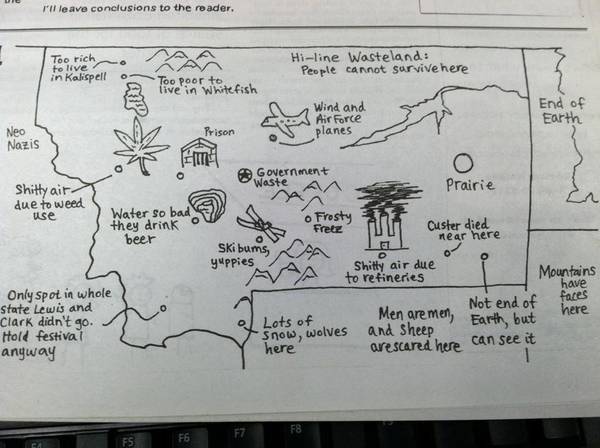 I'll leave conclusions to the reader.
Too rich
to live
in Kalispell
Too poor to
live in Whitefish
Hi-line Wasteland:
People cannot survive here
End of
Earth
Neo
Nazis
Prison
Wind and
Air Force
planes
Shitty air
due to weed
use
Government
Waste
Prairie
Water so bad
they drink
beer
Frosty
Freez
Ski bums,
yuppies
Shitty air due
to refineries
Custer died
near here
Mountains
have
faces
here
Only spot in whole
state Lewis and
Clark didn't go.
Hold festival
anyway
Lots of
snow, wolves
here
Men are men,
and sheep
are scared here
Not end of
Earth, but
can see it
F5
F6
F7
F8